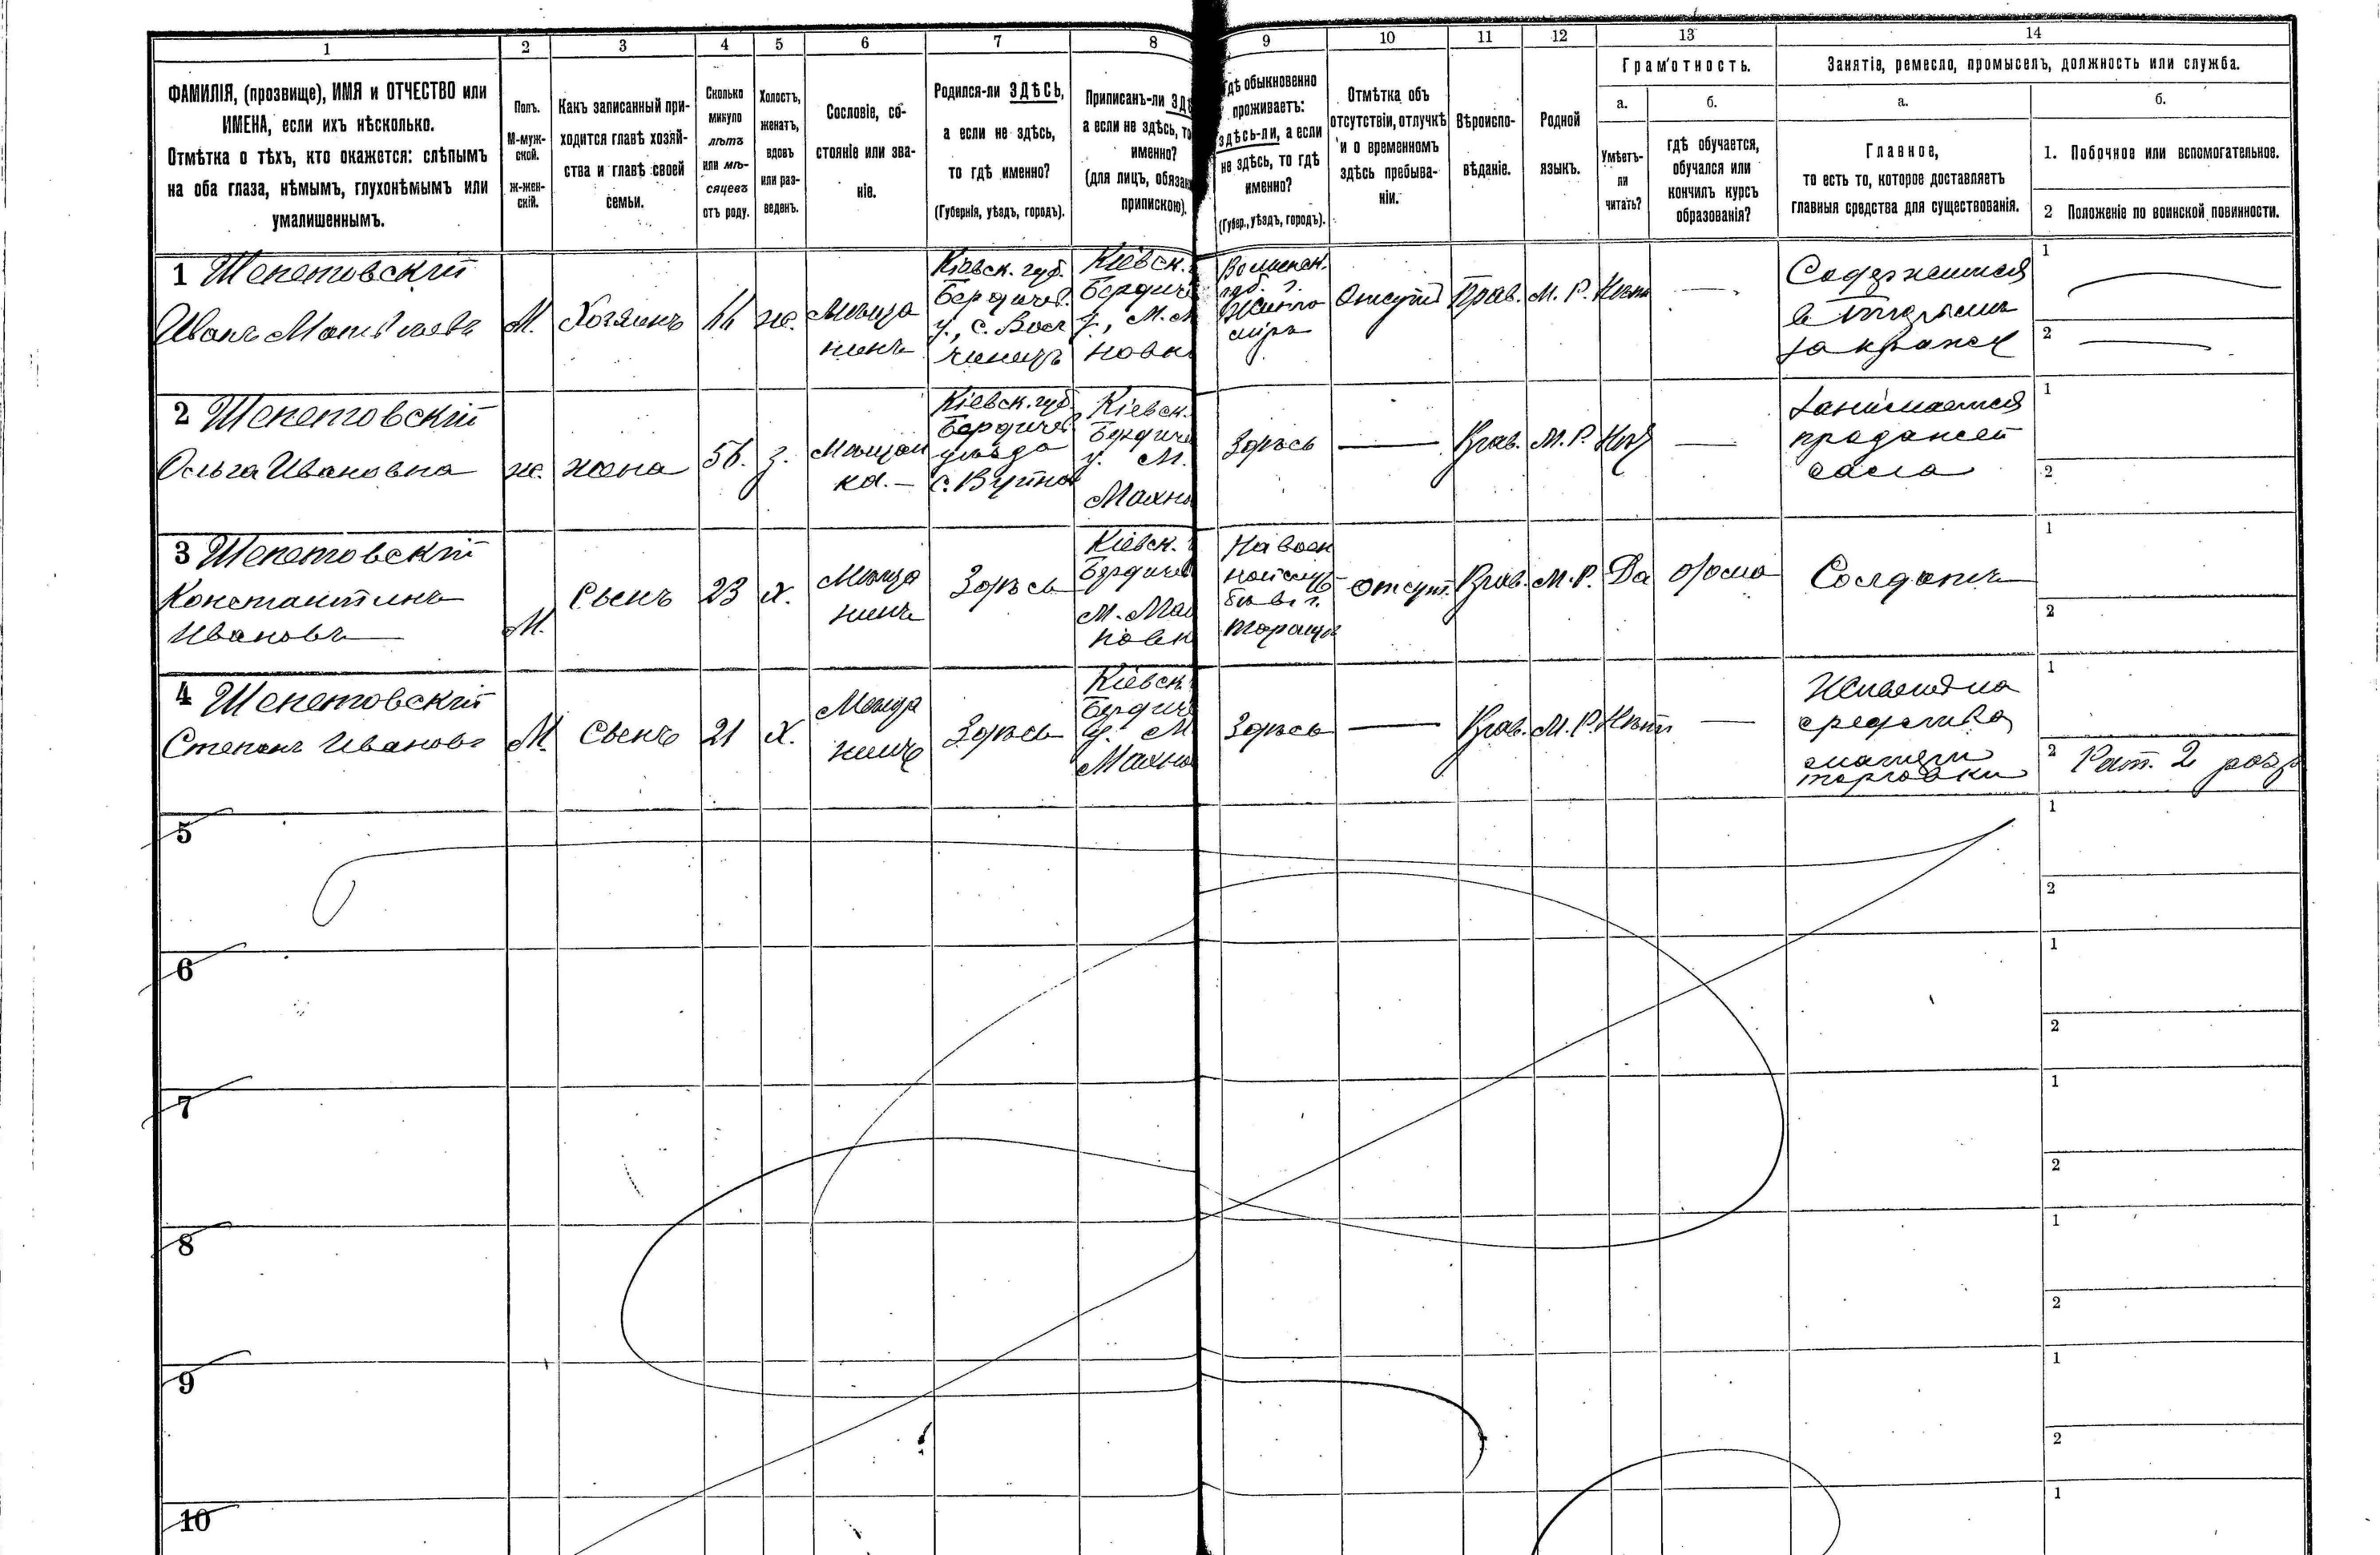 1 2 3 4 5 6 7 8 9 10 11 12 13 14
ФАМИЛІЯ, (прозвище), ИМЯ и ОТЧЕСТВО или
ИМЕНА, если ихъ нѣсколько.
Отмѣтка о тѣхъ, кто окажется: слѣпымъ
на оба глаза, нѣмымъ, глухонѣмымъ или
умалишеннымъ.
Полъ.
М-муж-
ской.
ж-жен-
скій.
Какъ записанный при-
ходится главѣ хозяй-
ства и главѣ своей
семьи.
Сколько
минуло
лѣтъ
или мѣ-
сяцевъ
отъ роду.
Холостъ,
женатъ,
вдовъ
или раз-
веденъ.
Сословіе, со-
стояніе или зва-
ніе.
Родился-ли ЗДѢСЬ,
а если не здѣсь,
то гдѣ именно?
(Губернія, уѣздъ, городъ).
Приписанъ-ли
а если не здѣсь,
именно?
(для лицъ,
припискою).
гдѣ обыкновенно
проживаетъ:
здѣсь-ли, а если
не здѣсь, то гдѣ
именно?
(Губер., уѣздъ, городъ).
Отмѣтка объ
отсутствіи, отлучкѣ
и о временномъ
здѣсь пребыва-
ніи.
Вѣроиспо-
вѣданіе.
Родной
языкъ.
Грамотность.
а.
Умѣетъ-
ли
читать?
б.
гдѣ обучается,
обучался или
кончилъ курсъ
образованія?
Занятіе, ремесло, промыселъ, должность или служба.
а.
Главное,
то есть то, которое доставляетъ
главныя средства для существованія.
б.
1. Побочное или вспомогательное.
2 Положеніе по воинской повинности.
1 Шепетовскій
Иванъ
М.
Хозяинъ
ж.
Мѣща
нинъ
Кіевск. губ.
Бердичев.
у., с.
Кіевск.
у., М.
новк
Волынск.
губ. г.
Жито
міръ
Отсут
Прав.
М. Р.
Нѣтъ
—
Содержится
в тюрьмѣ
за кражу
1
2
2 Шепетовскій
Ольга Ивановна
ж.
жена
56.
з.
Мѣщан
ка.—
Кіевск. губ.
Бердичев
уѣзда
Кіевск.
у. М.
Махно
Здѣсь
—
Прав.
М. Р.
—
Занимается
продажей
сала
1
2
3 Шепетовскій
Константинъ
Ивановъ
М.
Сынъ
23
х.
Мѣща
нинъ
Здѣсь
Кіевск.
Бердичев
М. Мах
новк
На воен
ной служ
бѣ в г.
отсут.
Прав.
М. Р.
Да
Солдатъ
1
2
4 Шепетовскій
Степанъ Ивановъ
М
Сынъ
21
х.
Мѣща
нинъ
Здѣсь
Кіевск.
Бердиче
у. М
Махно
Здѣсь
—
Прав.
М. Р.
Нѣтъ
—
Живетъ на
средства
матери
торговки
1
2 Рат. 2 разр
5
1
2
6
1
2
7
1
2
8
1
2
9
1
2
10
1